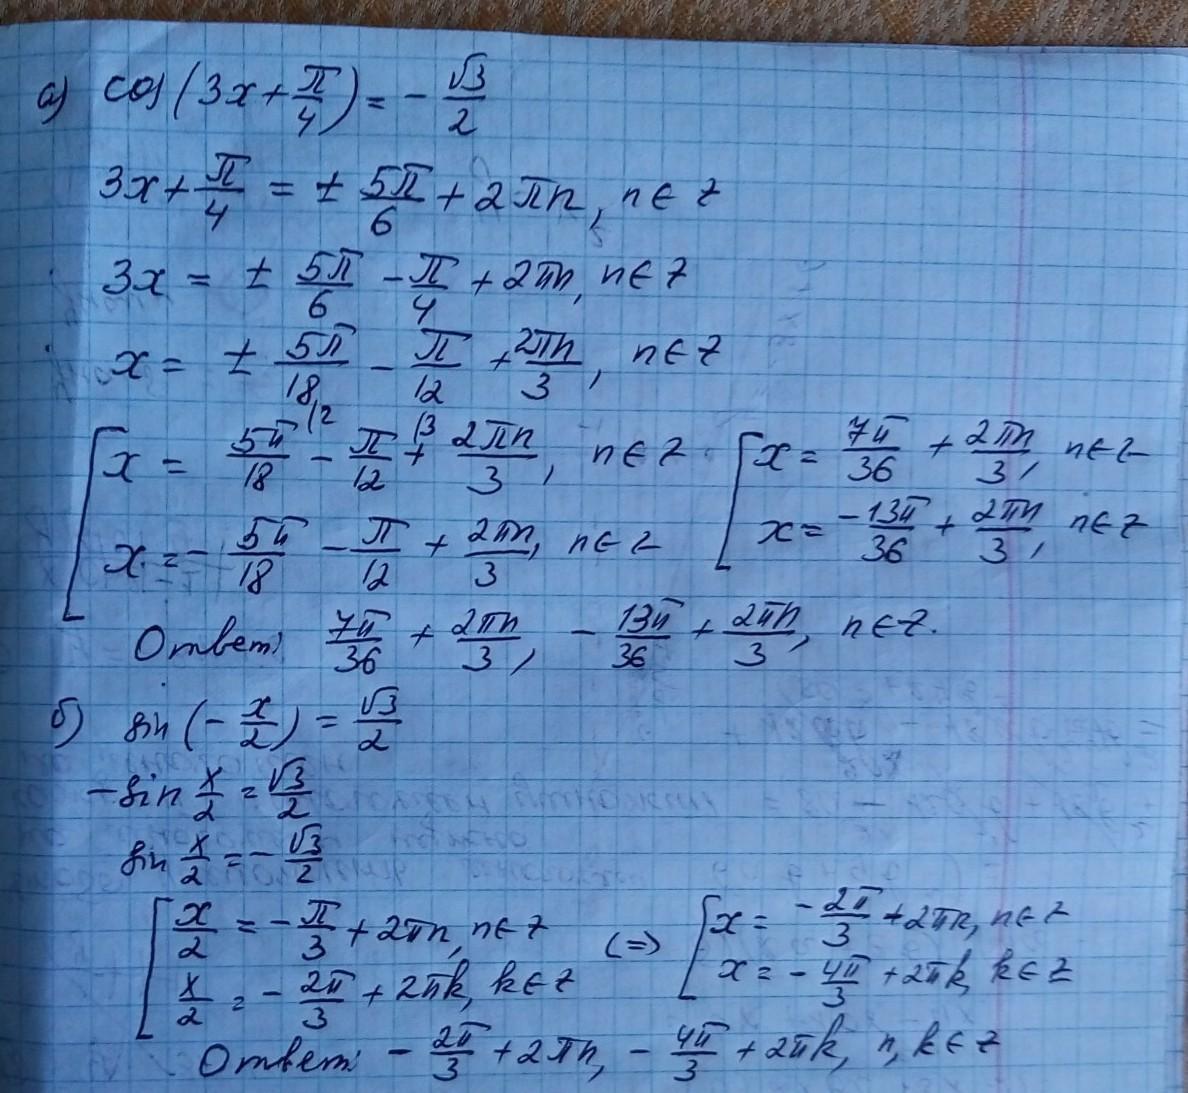 а) cos(3x + π/4) = - √3/2
3x + π/4 = ± 5π/6 + 2πn, n ∈ Z
3x = ± 5π/6 - π/4 + 2πn, n ∈ Z
x = ± 5π/18 - π/12 + 2πn/3, n ∈ Z
[ x = 5π/18 (2 - π/12 (3 + 2πn/3, n ∈ Z [ x = 7π/36 + 2πn/3, n ∈ Z
x = - 5π/18 - π/12 + 2πn/3, n ∈ Z x = -13π/36 + 2πn/3, n ∈ Z
Ответ: 7π/36 + 2πn/3, - 13π/36 + 2πn/3, n ∈ Z.
б) sin(- x/2) = √3/2
- sin x/2 = √3/2
sin x/2 = - √3/2
[ x/2 = - π/3 + 2πn, n ∈ Z (=) [ x = - 2π/3 + 2πn, n ∈ Z
x/2 = - 2π/3 + 2πk, k ∈ Z x = - 4π/3 + 2πk, k ∈ Z
Ответ: - 2π/3 + 2πn, - 4π/3 + 2πk, n, k ∈ Z